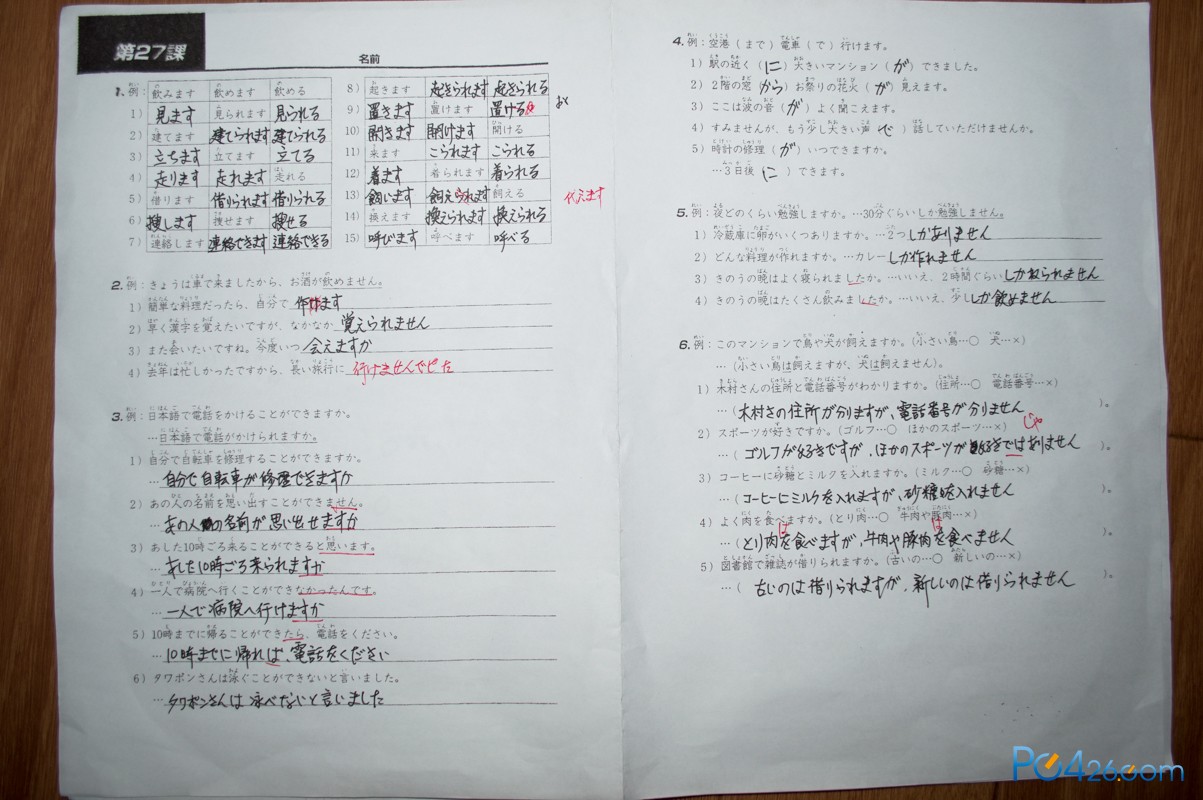 第27課
名前
1. 例: 飲みます 飲めます 飲める
1) 見ます 見られます 見られる
2) 建てます 建てられます 建てられる
3) 立ちます 立てます 立てる
4) 走ります 走れます 走れる
5) 借ります 借りられます 借りられる
6) 捜します 捜せます 捜せる
7) 連絡します 連絡できます 連絡できる
8) 起きます 起きられます 起きられる
9) 置きます 置けます 置ける
10) 開きます 開けます 開ける
11) 来ます こられます こられる
12) 着ます 着られます 着られる
13) 飼います 飼えられます 飼える
代えます
14) 換えます 換えられます 換えられる
15) 呼びます 呼べます 呼べる
2. 例: きょうは車で来ましたから、お酒が飲めません。
1) 簡単な料理だったら、自分で 作れます
2) 早く漢字を覚えたいですが、なかなか 覚えられません
3) また会いたいですね。今度いつ 会えますか
4) 去年は忙しかったですから、長い旅行に 行けませんでした
3. 例: 日本語で電話をかけることができますか。
…日本語で電話がかけられますか。
1) 自分で自転車を修理することができますか。
…自分で自転車が修理できますか
2) あの人の名前を思い出すことができません。
…あの人の名前が思い出せますか
3) あした10時ごろ来ることができると思います。
…あした10時ごろ来られますか
4) 一人で病院へ行くことができなかったんです。
…一人で病院へ行けますか
5) 10時までに帰ることができたら、電話をください。
…10時までに帰れば、電話をください
6) タワポンさんは泳ぐことができないと言いました。
…タワポンさんは泳べないと言いました
4. 例: 空港(まで)電車(で)行けます。
1) 駅の近く(に)大きいマンション(が)できました。
2) 2階の窓(から)お祭りの花火(が)見えます。
3) ここは波の音(が)よく聞こえます。
4) すみませんが、もう少し大きい声(で)話していただけませんか。
5) 時計の修理(が)いつできますか。
…3日後(に)できます。
5. 例: 夜どのくらい勉強しますか。…30分ぐらいしか勉強しません。
1) 冷蔵庫に卵がいくつありますか。…2つ しかありません
2) どんな料理が作れますか。…カレー しか作れません
3) きのうの晩はよく寝られましたか。…いいえ、2時間ぐらい しかねられません
4) きのうの晩はたくさん飲みましたか。…いいえ、少し しか飲めません
6. 例: このマンションで鳥や犬が飼えますか。(小さい鳥…○ 犬…×)
…(小さい鳥は飼えますが、犬は飼えません)。
1) 木村さんの住所と電話番号がわかりますか。(住所…○ 電話番号…×)
…(木村さの住所が分りますが、電話番号が分りません)。
2) スポーツが好きですか。(ゴルフ…○ ほかのスポーツ…×)
じゃ
…(ゴルフが好きですが、ほかのスポーツが好きではありません)。
3) コーヒーに砂糖とミルクを入れますか。(ミルク…○ 砂糖…×)
…(コーヒーにミルクを入れますが、砂糖を入れません)。
4) よく肉を食べますか。(とり肉…○ 牛肉や豚肉…×)
は は
…(とり肉を食べますが、牛肉や豚肉を食べません)。
5) 図書館で雑誌が借りられますか。(古いの…○ 新しいの…×)
…(古いのは借りられますが、新しいのは借りられません)。
PC426.com